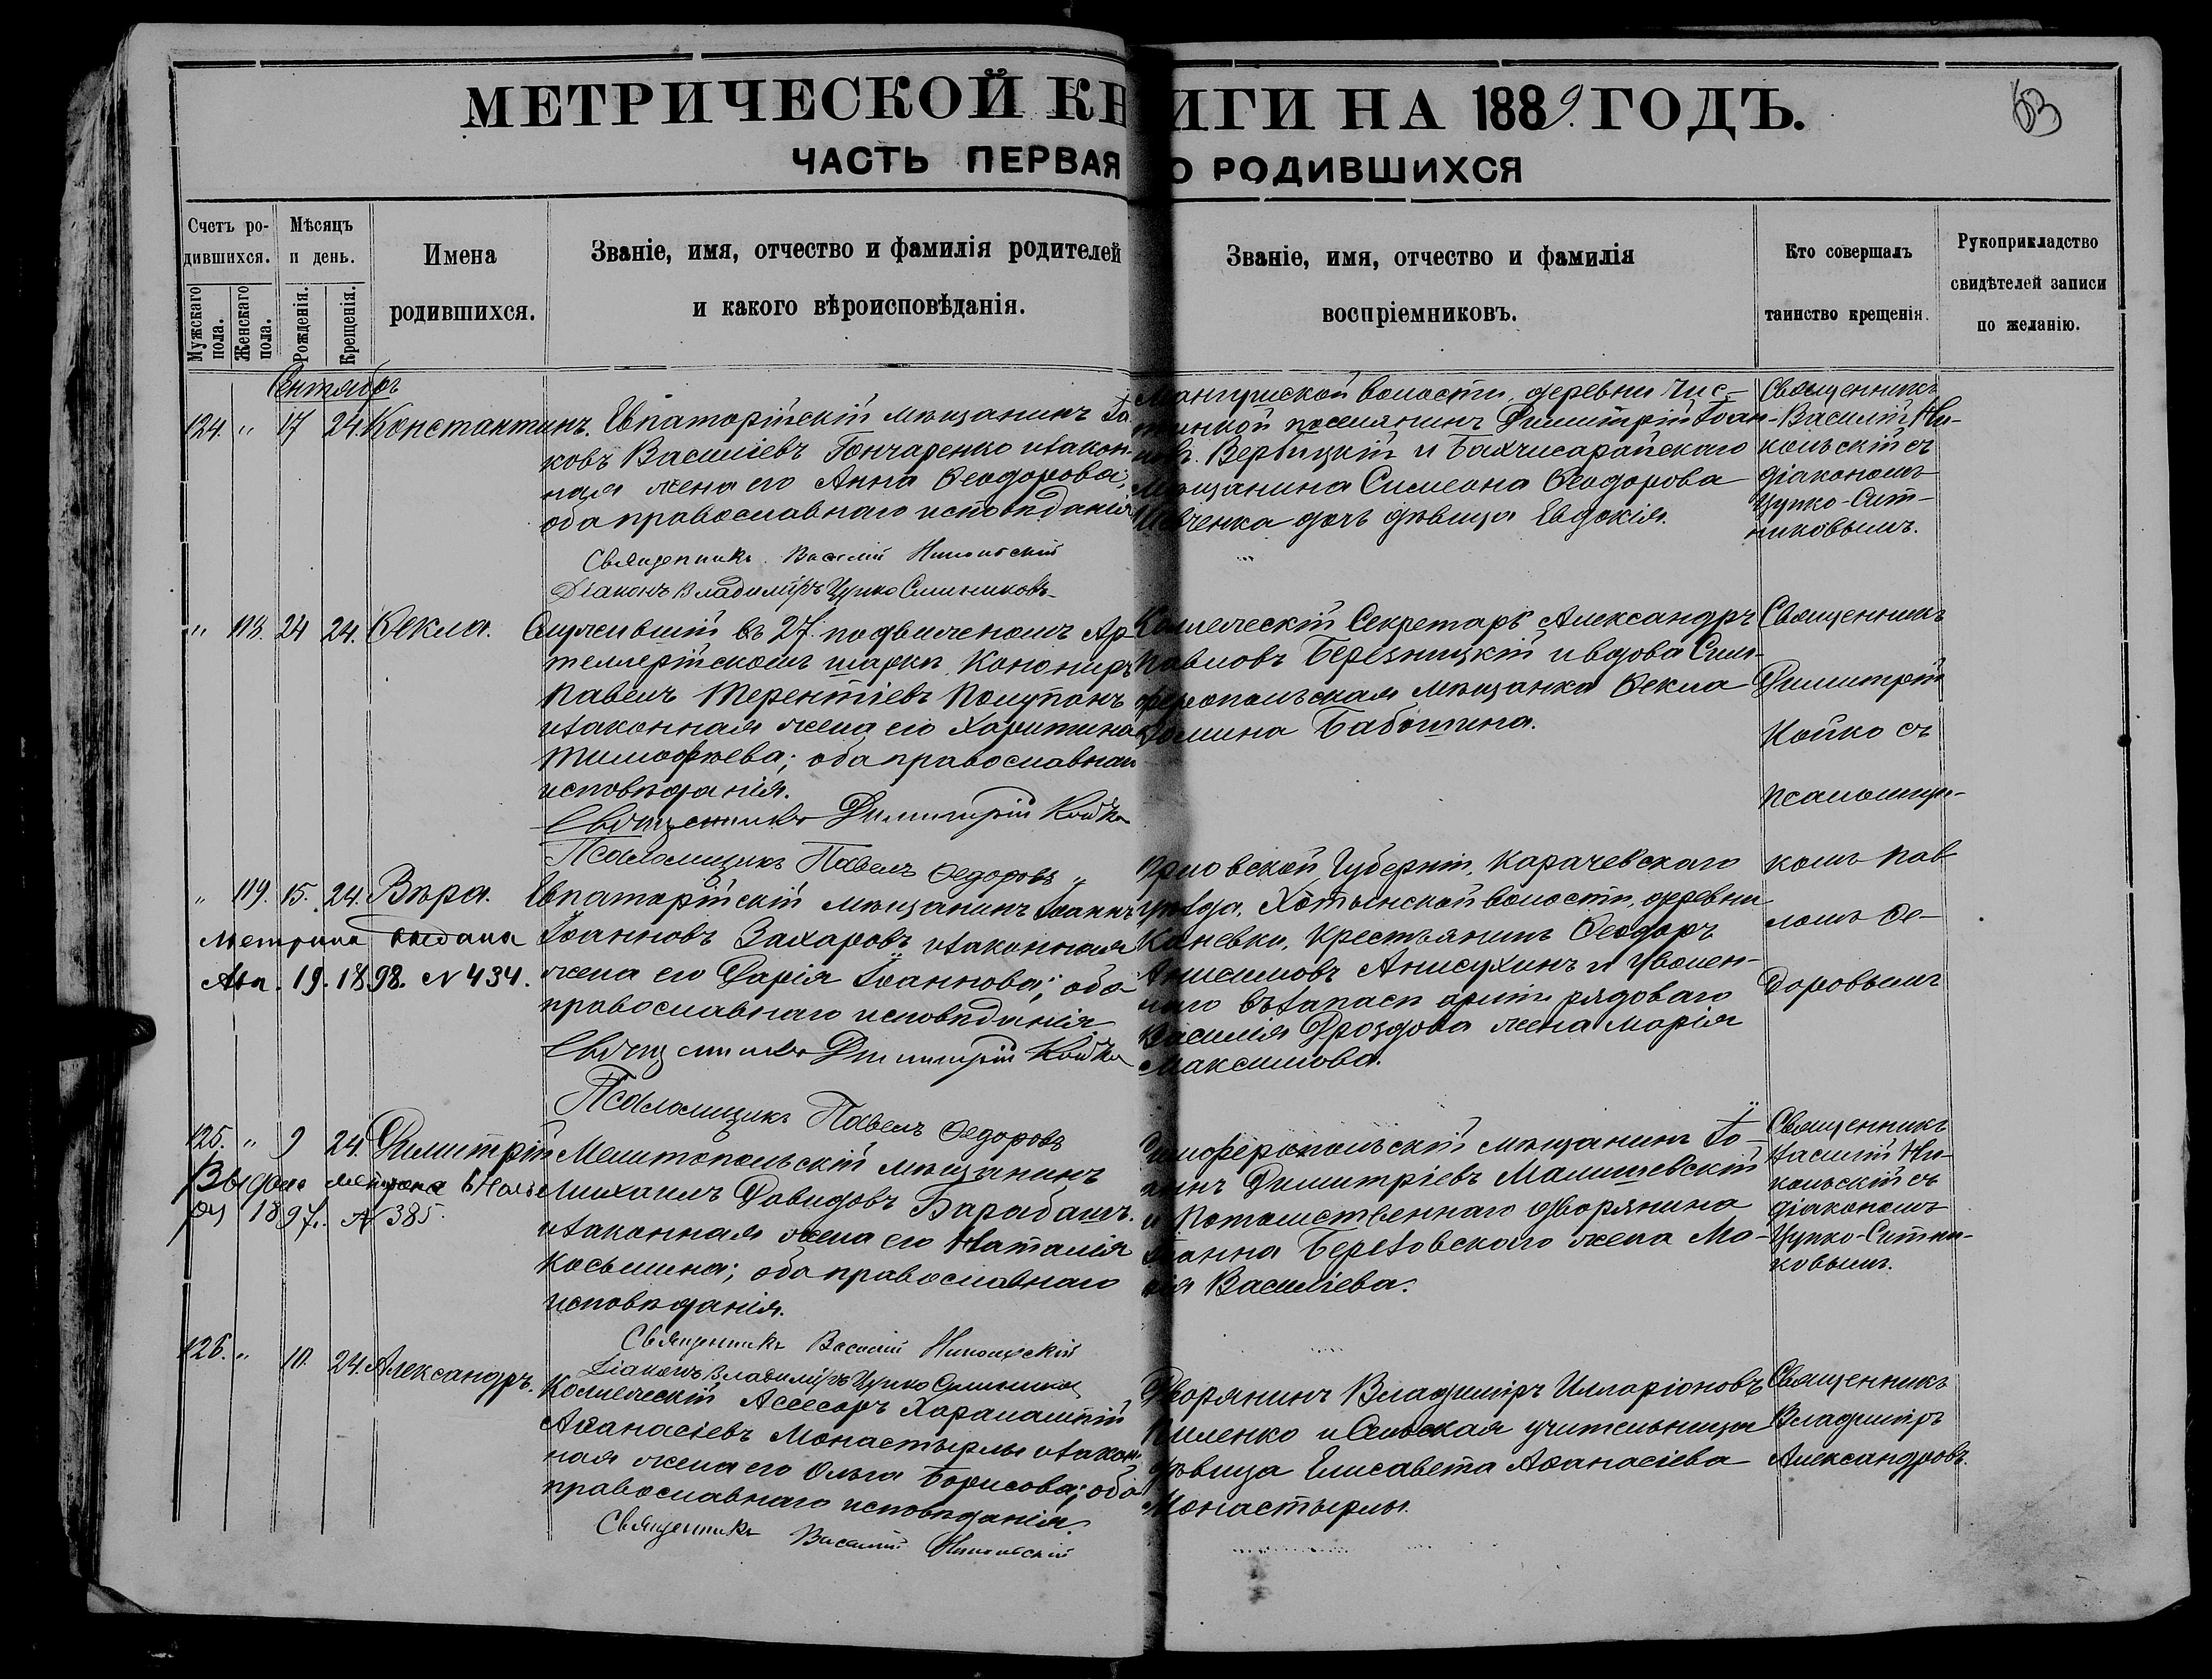 МЕТРИЧЕСКОЙ КНИГИ НА 1889. ГОДЪ.
63
ЧАСТЬ ПЕРВАЯ О РОДИВШИХСЯ
Счетъ родившихся.
Мужскаго пола.
Женскаго пола.
Мѣсяцъ и день.
Рожденія.
Крещенія.
Имена
родившихся.
Званіе, имя, отчество и фамилія родителей
и какого вѣроисповѣданія.
Званіе, имя, отчество и фамилія
воспріемниковъ.
Кто совершалъ
таинство крещенія.
Рукоприкладство
свидѣтелей записи
по желанію.
Сентябрь
124. " 17 24 Константинъ.
Евпаторійскій мѣщанинъ Іа-
ковъ Василіевъ Гончаренко и закон-
ная жена его Анна Ѳеодорова;
оба православнаго исповѣданія
Священникъ Василій Никольскій
Діаконъ Владимиръ Цупко Ситниковъ
Мангушской волости, деревни
поселянинъ Димитрій Іоан-
новъ Вербицкій и Бахчисарайскаго
мѣщанина Симеона Ѳеодорова
Шевченка дочь дѣвица Евдокія.
Священникъ
Василій Ни-
кольскій съ
діакономъ
Цупко-Сит-
никовымъ.
" 118. 24 24. Ѳекла.
Служившій въ 27. подвижномъ Ар-
теллерійскомъ паркѣ Канониръ
Павелъ Терентіевъ
и законная жена его Харитина
Тимофѣева; оба православнаго
исповѣданія.
Священникъ Димитрій Койко
Псаломщикъ Павелъ Ѳедоровъ
Коллежскій Секретарь Александръ
Павловъ Березницкій и вдова Сим-
феропольская мѣщанка Ѳекла
Бабошина.
Священникъ
Димитрій
Койко съ
псаломщи-
комъ Пав-
ломъ Ѳе-
доровымъ
" 119. 15. 24. Вѣра.
Метрика выдана
Авг. 19. 1898. N 434.
Евпаторійскій мѣщанинъ Іоаннъ
Іоанновъ Захаровъ и законная
жена его Дарія Іоаннова; оба
православнаго исповѣданія
Священникъ Димитрій Койко
Псаломщикъ Павелъ Ѳедоровъ
Орловской Губерніи, Карачевскаго
уѣзда, Хотынской волости, деревни
Каневки, крестьянинъ Ѳеодоръ
Анисимовъ Анисухинъ и уволен-
наго въ запасъ арміи рядоваго
Василія Дроздова жена Марія
Максимова.
125. " 9 24. Димитрій
Выдана метрика
1897. N 385.
Мелитопольскій мѣщанинъ
Михаилъ Давидовъ Барабашъ
и законная жена его Наталія
Косьмина; оба православнаго
исповѣданія.
Священникъ Василій Никольскій
Діаконъ Владимиръ Цупко Ситниковъ
Симферопольскій мѣщанинъ Іо-
аннъ Димитріевъ Малишевскій
и Потомственнаго дворянина
Іоанна Березовскаго жена Ма-
рія Василіева.
Священникъ
Василій Ни-
кольскій съ
діакономъ
Цупко-Ситни-
ковымъ.
126. " 10. 24. Александръ.
Коллежскій Асесоръ Харалампій
Аѳанасіевъ Монастырлы и закон-
ная жена его Ольга Борисова; оба
православнаго исповѣданія.
Священникъ Василій Никольскій
Дворянинъ Владимиръ Илларіоновъ
Пиленко и Сельская учительница
дѣвица Елисавета Аѳанасіева
Монастырлы.
Священникъ
Владимиръ
Александровъ.